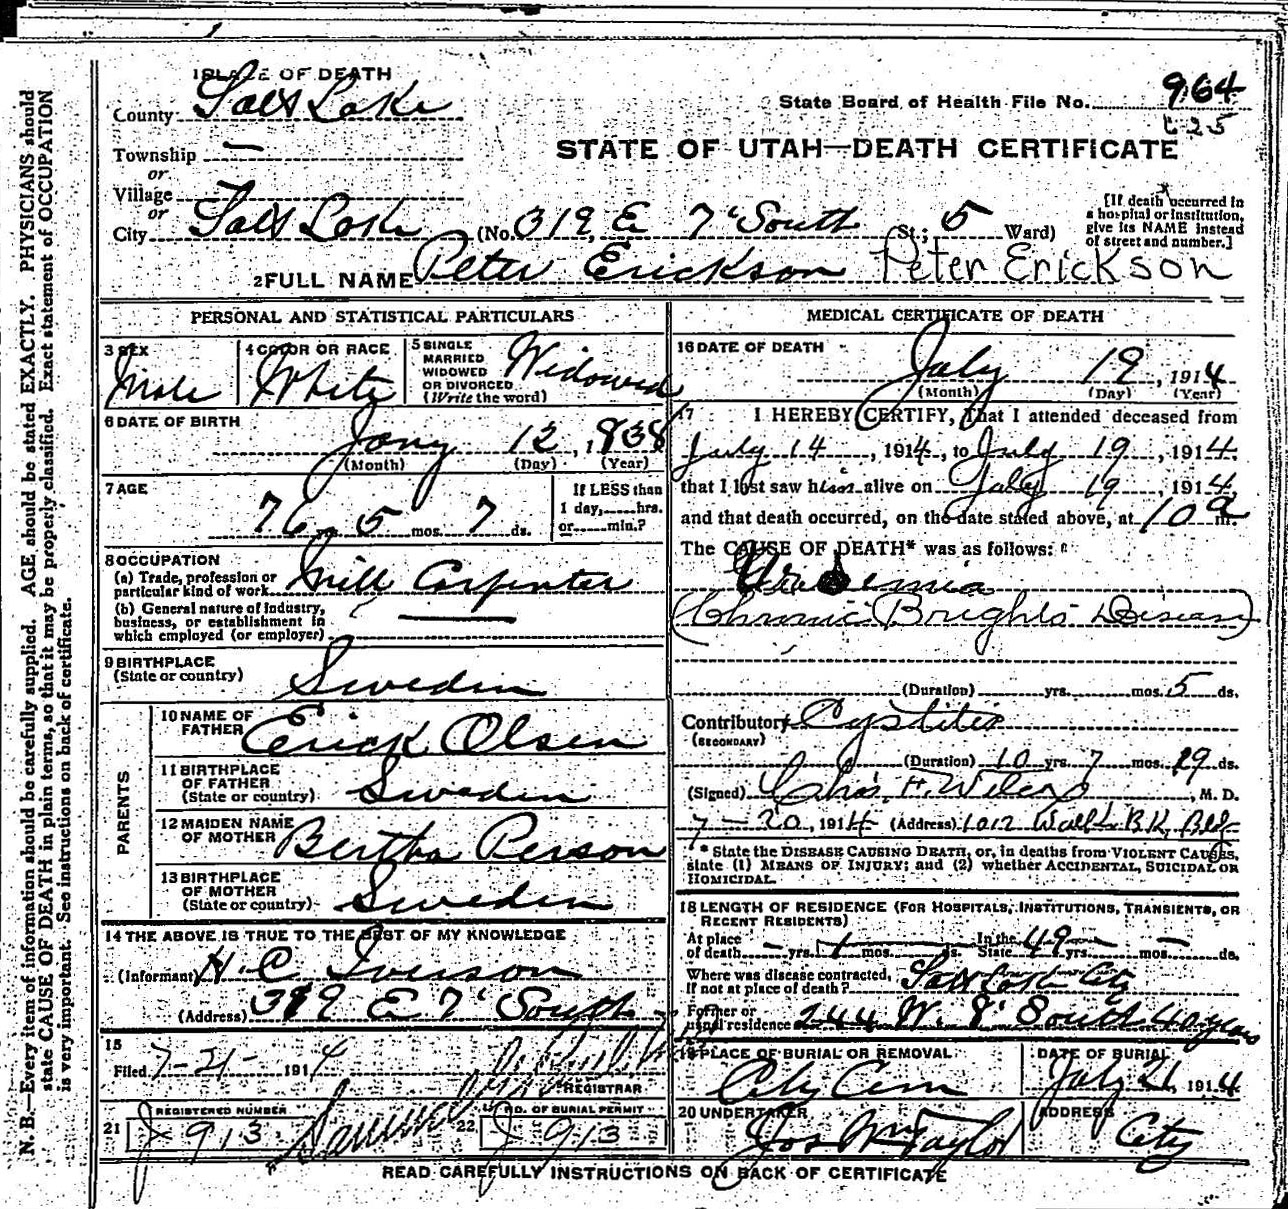 1 PLACE OF DEATH
County Salt Lake
State Board of Health File No. 964
Township —
or
STATE OF UTAH—DEATH CERTIFICATE
Village
or
City Salt Lake (No. 319 E 7' South St; 5 Ward)
[If death occurred in
a hospital or institution,
give its NAME instead
of street and number.]
2 FULL NAME Peter Erickson Peter Erickson
PERSONAL AND STATISTICAL PARTICULARS
3 SEX Male
4 COLOR OR RACE White
5 SINGLE
MARRIED
WIDOWED
OR DIVORCED
(Write the word)
Widowed
6 DATE OF BIRTH
Jany 12, 1838
(Month) (Day) (Year)
7 AGE
76 5 mos. 7 ds.
If LESS than
1 day, hrs.
or min.?
8 OCCUPATION
(a) Trade, profession or
particular kind of work Mill Carpenter
(b) General nature of industry,
business, or establishment in
which employed (or employer)
9 BIRTHPLACE
(State or country) Sweden
PARENTS
10 NAME OF
FATHER Erick Olsen
11 BIRTHPLACE
OF FATHER
(State or country) Sweden
12 MAIDEN NAME
OF MOTHER Bertha Person
13 BIRTHPLACE
OF MOTHER
(State or country) Sweden
14 THE ABOVE IS TRUE TO THE BEST OF MY KNOWLEDGE
(Informant) H. C. Iverson
(Address) 319 E 7' South
15
Filed 7-21- 1914
REGISTRAR
REGISTERED NUMBER
21 J 913
NO. OF BURIAL PERMIT
22 J 913
MEDICAL CERTIFICATE OF DEATH
16 DATE OF DEATH
July 19, 1914
(Month) (Day) (Year)
17 I HEREBY CERTIFY, That I attended deceased from
July 14, 1914, to July 19, 1914.
that I last saw him alive on July 19, 1914
and that death occurred, on the date stated above, at 10 a m.
The CAUSE OF DEATH* was as follows:
Uraemia
(Chronic Brights Disease)
(Duration) yrs. mos. 5 ds.
Contributory Cystitis
(SECONDARY)
(Duration) 10 yrs. 7 mos. 29 ds.
(Signed) Chas. F. Wilcox, M. D.
7-20, 1914 (Address) 1012 Walk. BK. Bldg
* State the DISEASE CAUSING DEATH, or, in deaths from VIOLENT CAUSES,
state (1) MEANS OF INJURY; and (2) whether ACCIDENTAL, SUICIDAL OR
HOMICIDAL.
18 LENGTH OF RESIDENCE (FOR HOSPITALS, INSTITUTIONS, TRANSIENTS, OR
RECENT RESIDENTS)
At place
of death — yrs. 1 mos. ds. In the
State 49 yrs. — mos. — ds.
Where was disease contracted,
If not at place of death? Salt Lake City
Former or
usual residence 244 W. 8' South 40 years
19 PLACE OF BURIAL OR REMOVAL
City Cem
DATE OF BURIAL
July 21 1914
20 UNDERTAKER
Jos Wm Taylor
ADDRESS
City
READ CAREFULLY INSTRUCTIONS ON BACK OF CERTIFICATE
N. B.—Every item of information should be carefully supplied. AGE should be stated EXACTLY. PHYSICIANS should
state CAUSE OF DEATH in plain terms, so that it may be properly classified. Exact statement of OCCUPATION
is very important. See instructions on back of certificate.